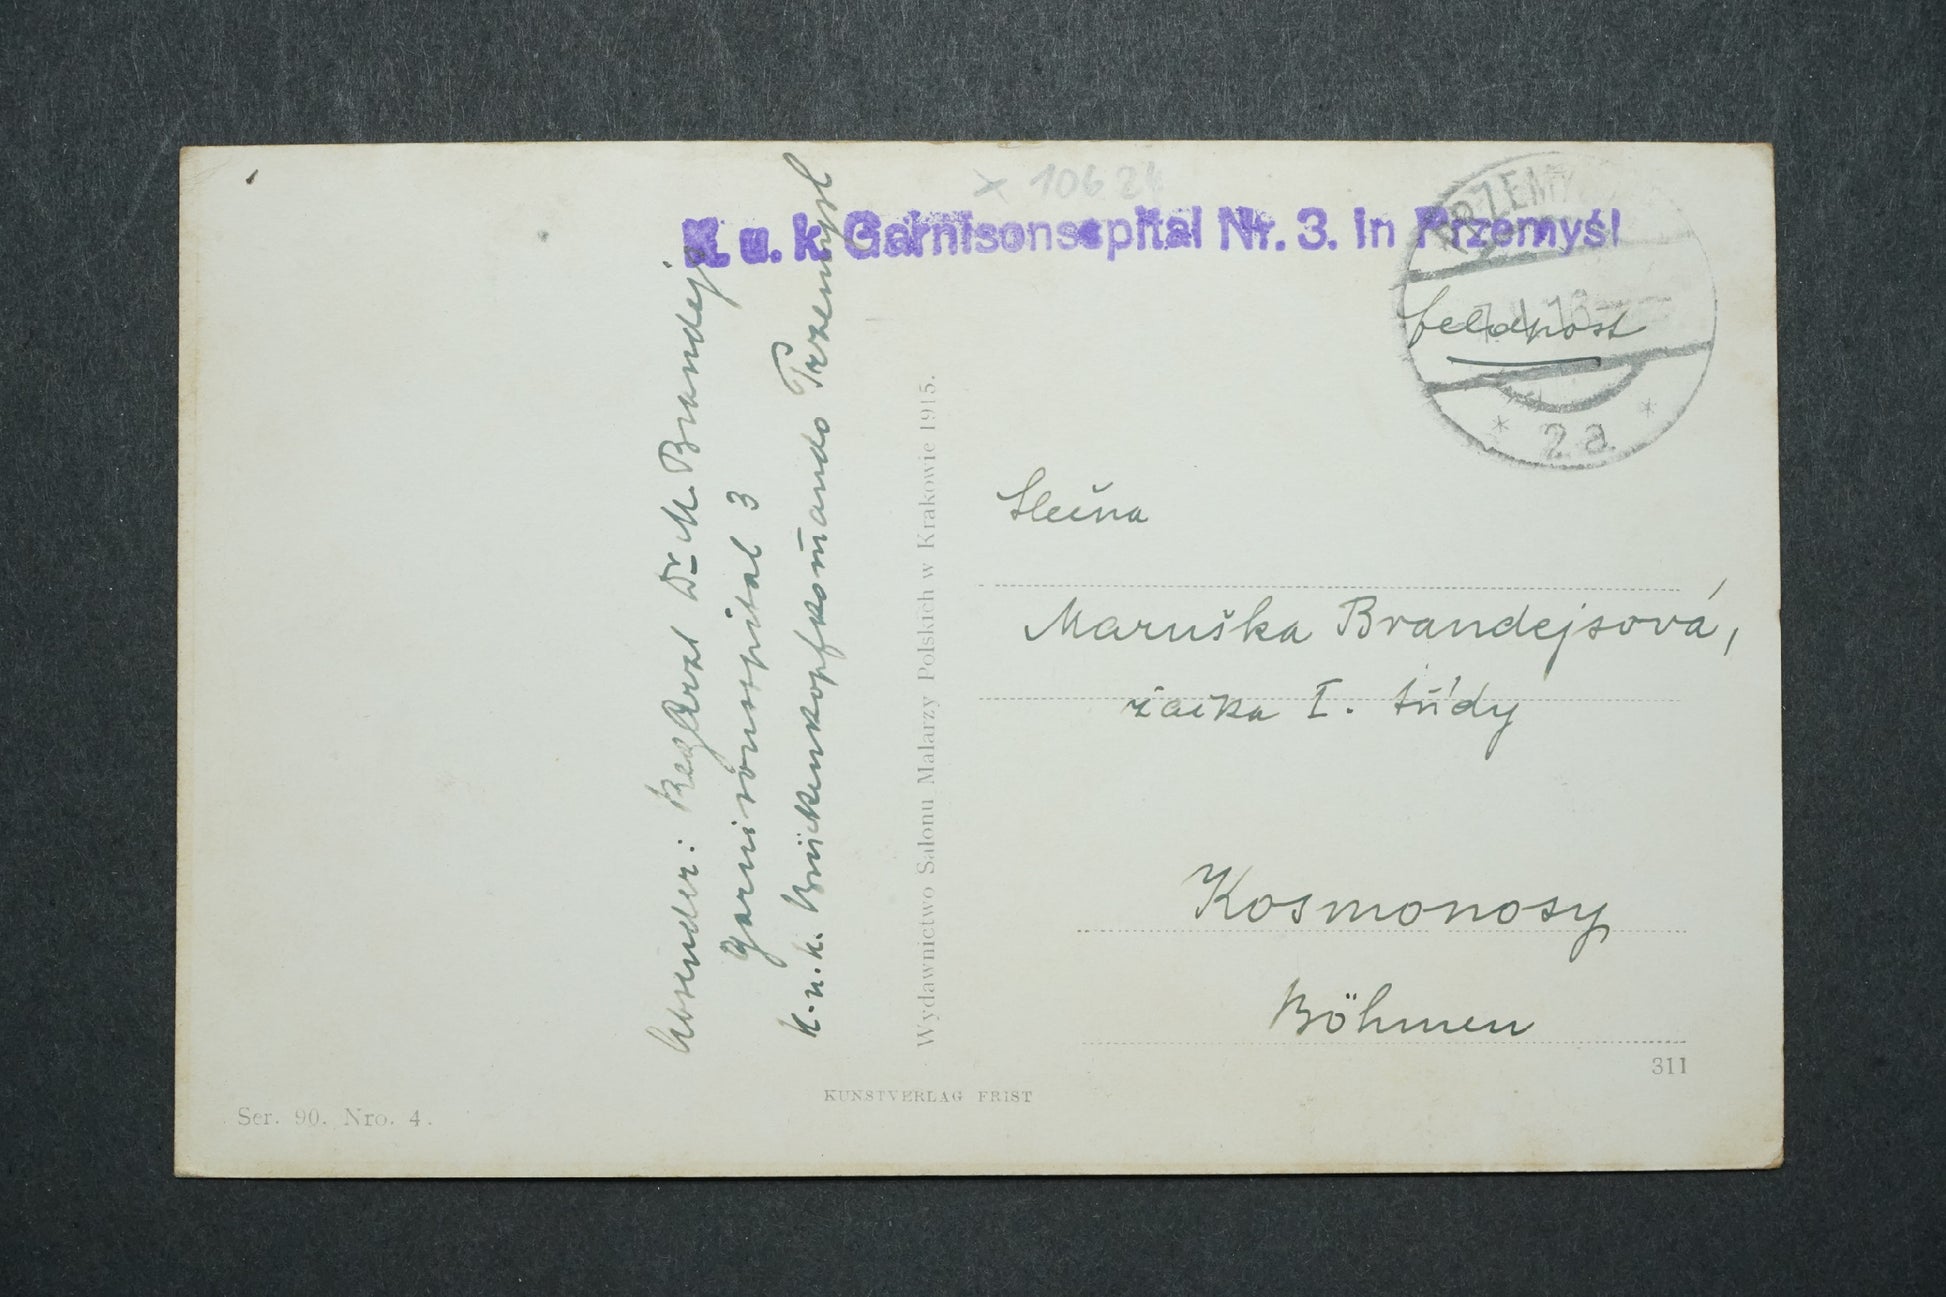 x 10624
K. u. k. Garnisonsspital Nr. 3. in Przemyśl
PRZEMY
Feldpost
2a
Absender: RegArzt Dr M. Brandejs
Garnisonsspital 3
k. u. k. Brückenkopfkom̄ando Przemysl
Wydawnictwo Salonu Malarzy Polskich w Krakowie 1915.
Slečna
Maruška Brandejsová,
žačka I. třídy
Kosmonosy
Böhmen
311
KUNSTVERLAG FRIST
Ser. 90. Nro. 4.